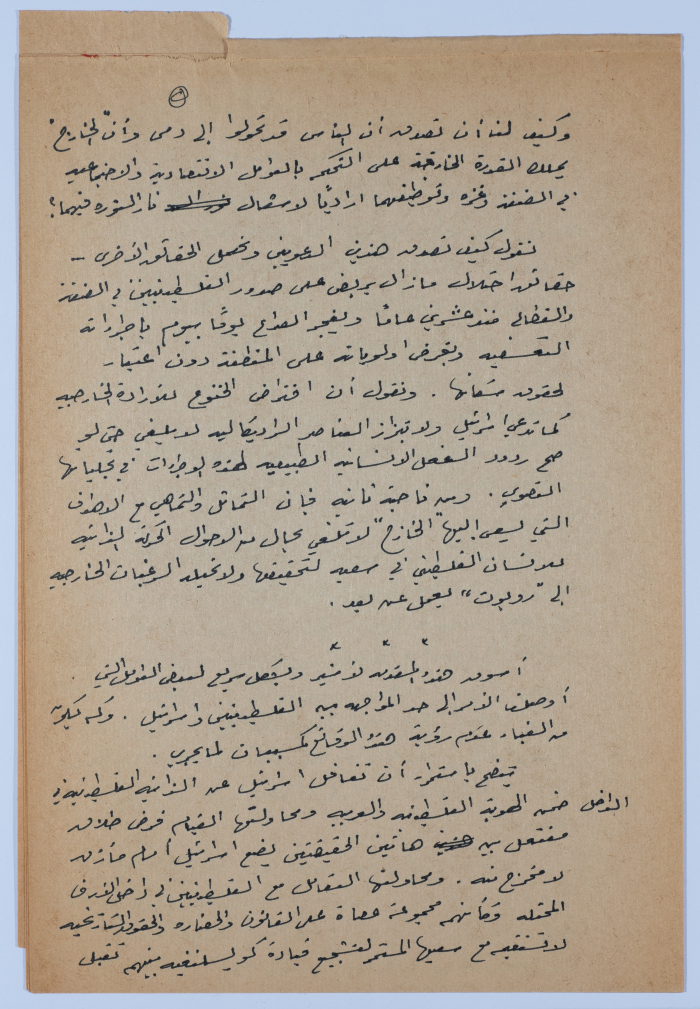 ٥
وكيف لنا أن نصدق أن الناس قد تحولوا إلى دمى وأن "الخارج"
يملك القدرة الخارقة على التحكم بالعوامل الاقتصادية والاجتماعيه
في الضفة وغزه وتوظيفهما اراديًا لاشعال نار الثوره فيهما؟
نقول كيف نصدق هذين الدعويين ونهمل الحقائق الأخرى –
حقائق احتلال مازال يربض على صدور الفلسطينيين في الضفة
والقطاع منذ عشرين عامًا ويفجر الصراع يومًا بيوم باجراءاته
التعسفيه ويفرض اولوياته على المنطقة دون اعتبار
لحقوق سكانها . ونقول أن افتراض الخنوع للارادة الخارجيه
كما تدعي اسرائيل ولابتزاز العناصر الراديكاليه لا يلغي حتى لو
صح ردود الفعل الانسانيه الطبيعيه لهذه الاجراءات في تجلياتها
القصوى . ومن ناحية ثانيه فإن التماثل والتماهي مع الاهداف
التي يسعى إليها "الخارج" لا تلغي بحال من الاحوال الحركة الذاتيه
للانسان الفلسطيني في سعيه لتحقيقها ولا تحيله الرغبات الخارجيه
إلى "روبوت" يعمل عن بعد .
* * *
أسوق هذه المقدمه لأشير وبشكل سريع لبعض العوامل التي
أوصلت الأمر إلى حد المواجهه بين الفلسطينيين واسرائيل . ولكم يكون
من الغباء عدم رؤية هذه الوقائع كمسببات لما يجري .
يتضح باستمرار أن تغافل اسرائيل عن الذاتيه الفلسطينيه في
الداخل ضمن الهوية الفلسطينيه والعربيه ومحاولتها القيام فرض طلاق
مفتعل بين هاتين الحقيقتين يضع اسرائيل أمام مأزق
لا مخرج منه . ومحاولتها التعامل مع الفلسطينيين في أراضي الأرض
المحتله وكأنهم مجموعة عصاة على القانون والحضاره والحقوق التاريخيه
لا تستقيم مع سعيها المستمر لتشجيع قيادة كويسلنغيه بينهم تقبل